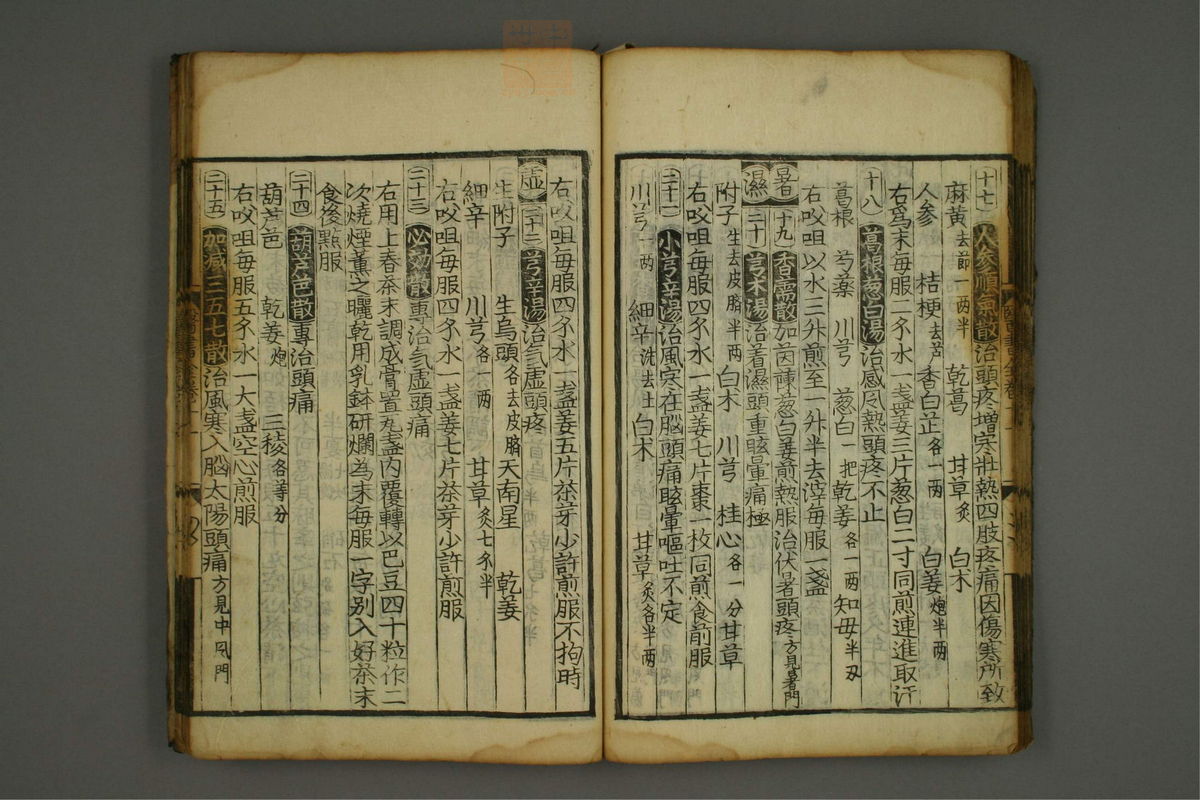 十七 人参順氣散治頭疼增寒壯熱四肢疼痛因傷寒所致
麻黃去節一两半 乾葛 甘草炙 白朮
人参 桔梗去苦 香白芷各一两 白姜炮半两
右爲末每服二夕水一盞姜三片葱白二寸同煎連進取汗
十八 葛根葱白湯治感風熱頭疼不止
葛根 芍藥 川芎 葱白一把 乾姜各一两 知母半刄
右㕮咀以水三升煎至一升半去滓每服一盞
暑 十九 香薷散加茵蔯葱白姜煎熱服治伏暑頭疼方見暑門
濕 二十 芎朮湯治着濕頭重眩暈痛極
附子生去皮臍半两 白朮 川芎 桂心各一分 甘草
右㕮咀每服四夕水一盞姜七片棗一枚同煎食前服
二十一 小芎辛湯治風寒在腦頭痛眩暈嘔吐不定
川芎一两 細辛洗去土 白朮 甘草炙各半两
右㕮咀每服四夕水一盞姜五片茶芽少許煎服不拘時
虛 二十二 芎辛湯治氣虛頭疼
生附子 生烏頭各去皮臍 天南星 乾姜
細辛 川芎各一两 甘草炙七夕半
右㕮咀每服四夕水一盞姜七片茶芽少許煎服
二十三 必効散專治氣虛頭痛
右用上春茶末調成膏置瓦盞内覆轉以巴豆四十粒作二
次燒煙熏之曬乾用乳鉢研爛為末每服一字别入好茶末
食後點服
二十四 葫芦芭散專治頭痛
葫芦芭 乾姜炮 三稜各等分
右㕮咀每服五夕水一大盞空心煎服
二十五 加减三五七散治風寒入腦太陽頭痛方見中風門